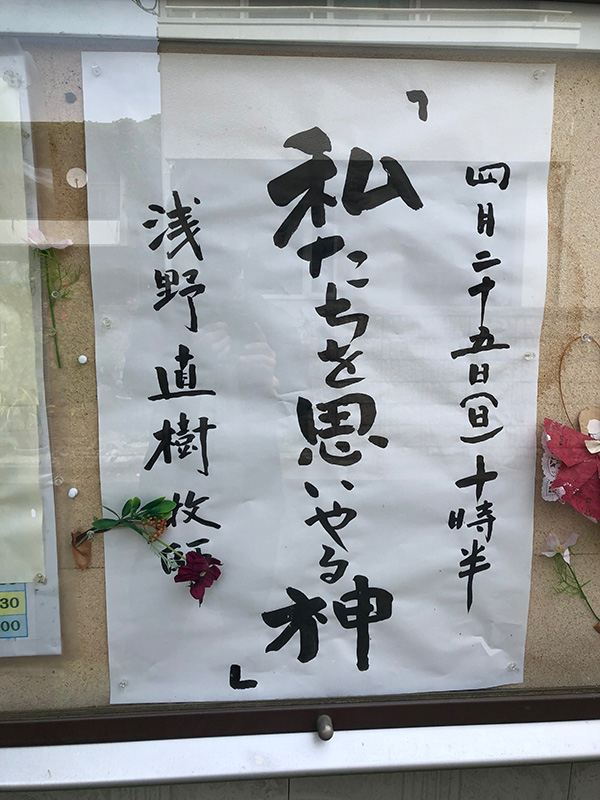 四月二十五日(日)十時半
「私たちを思いやる神」
浅野直樹牧師
30
00